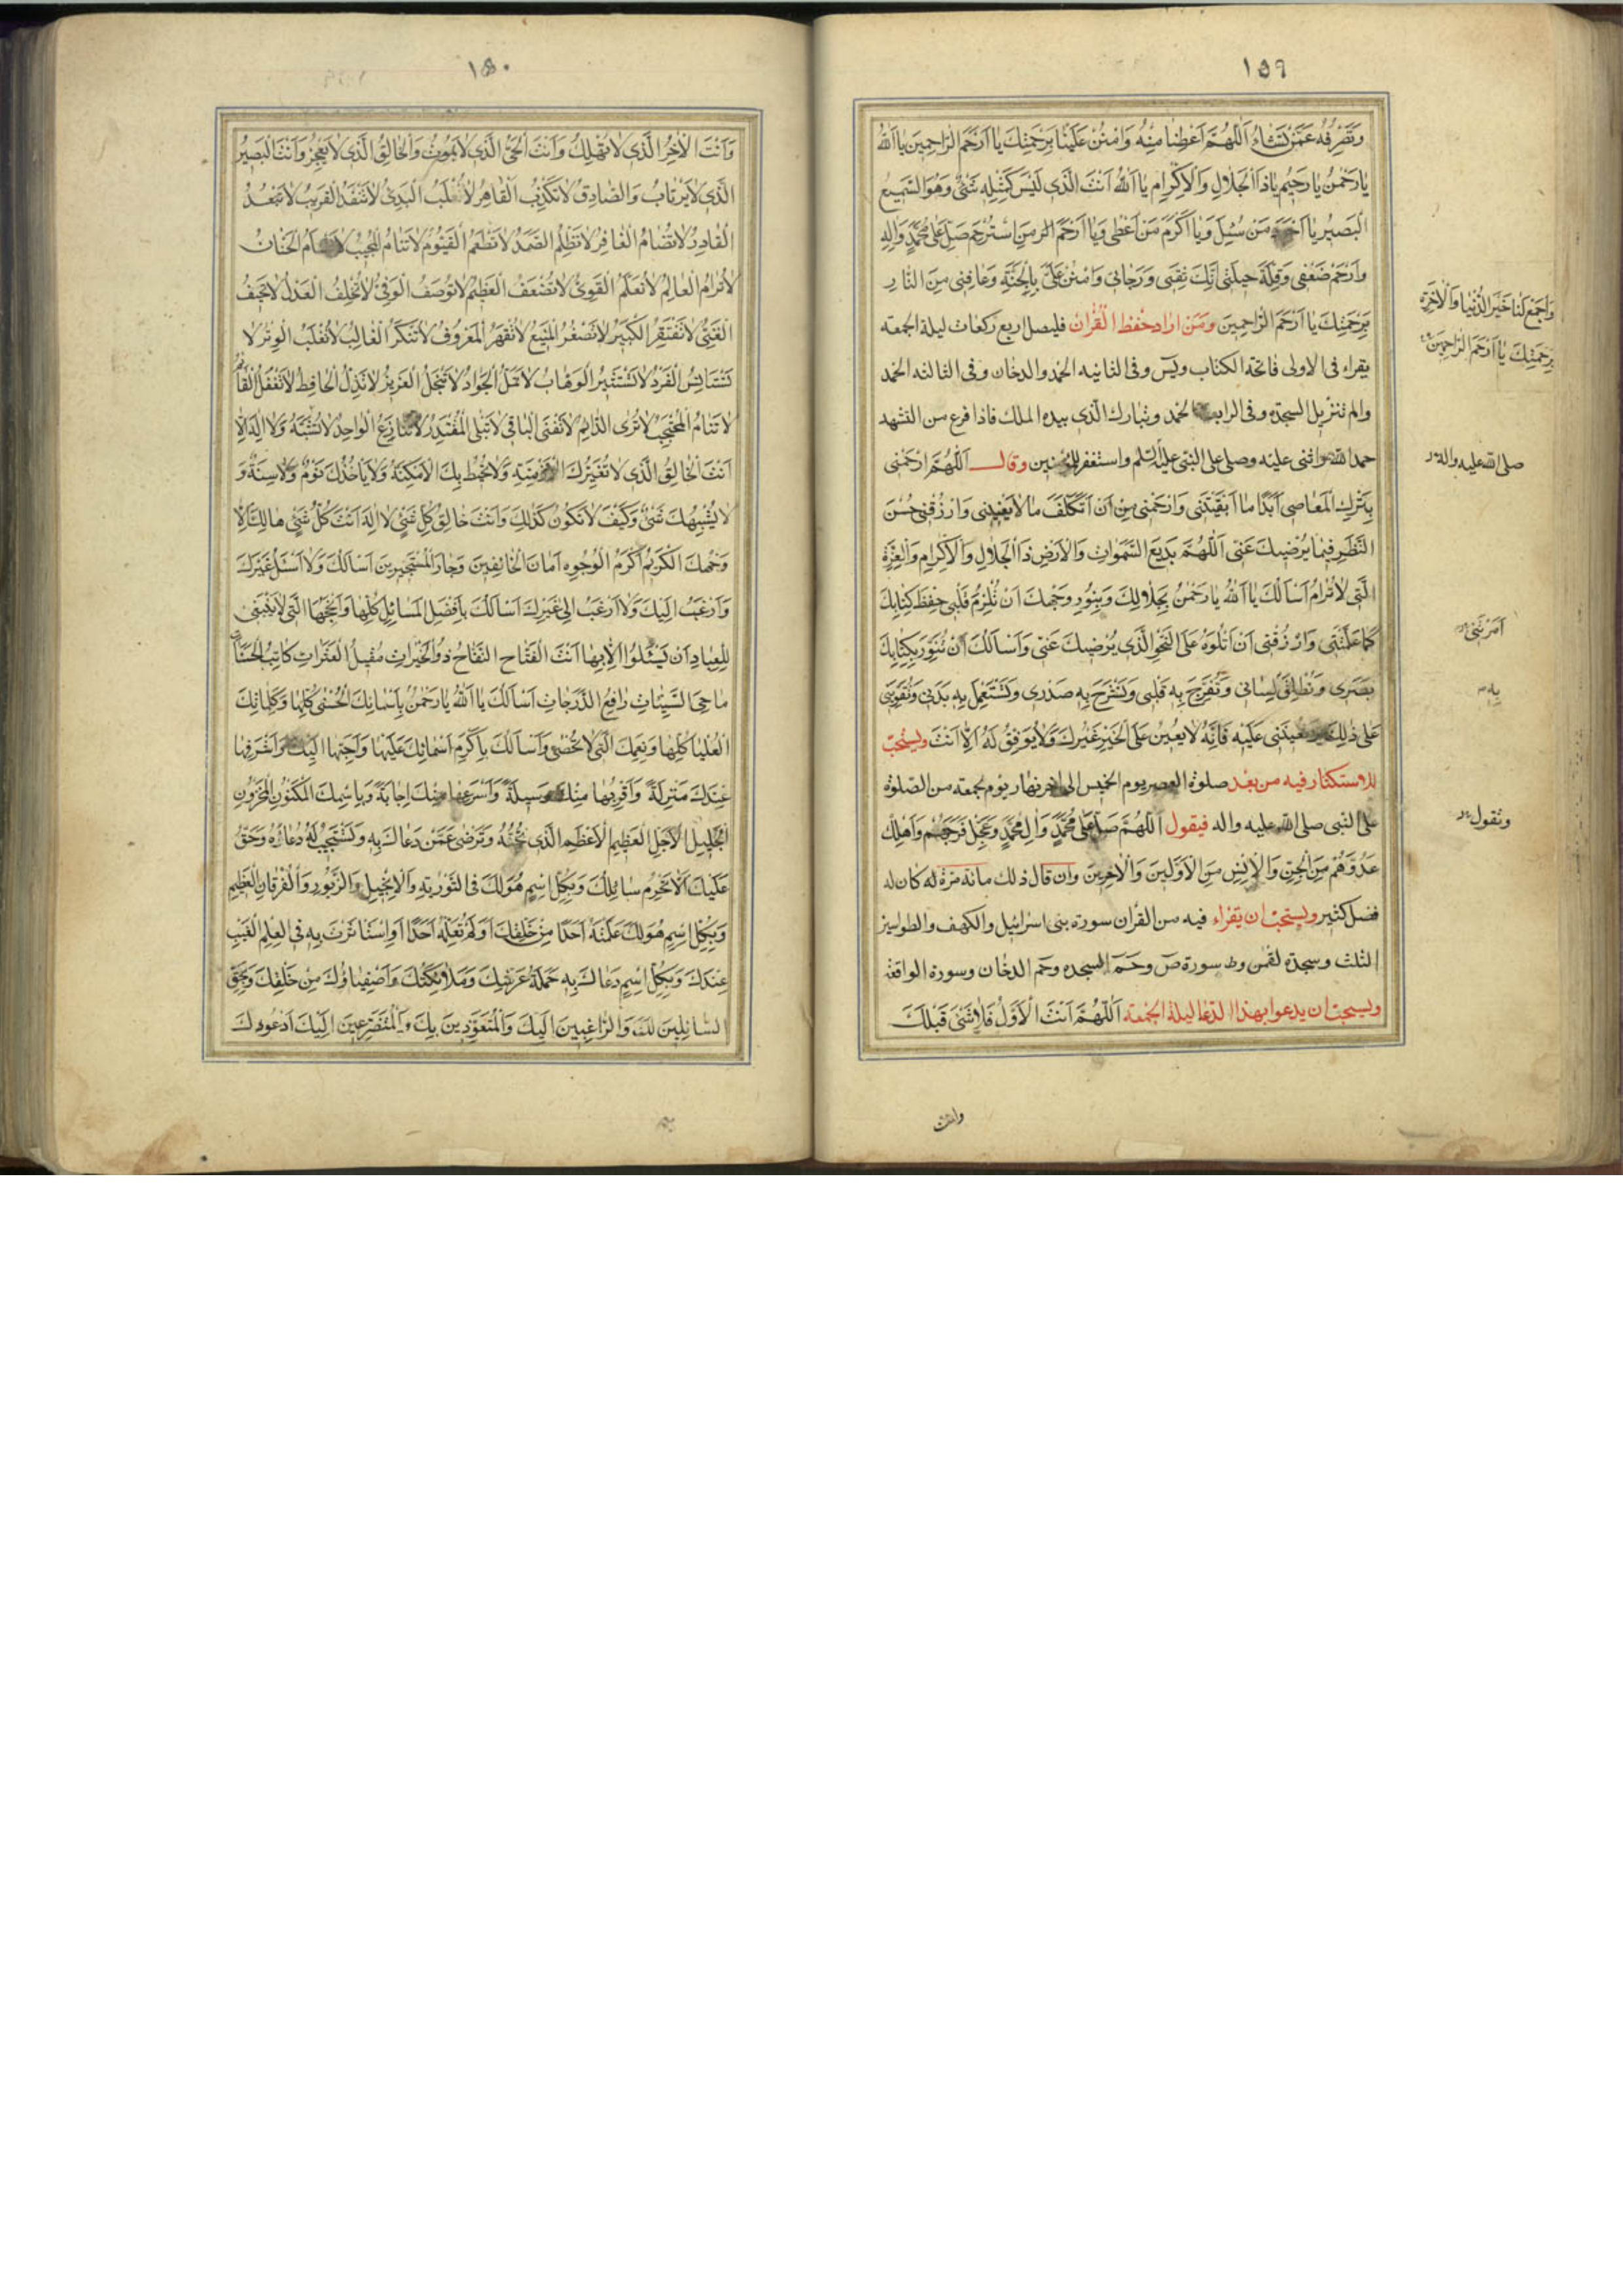 ١٥٩
وَتَصْرِفُهُ عَمَّنْ تَشَاءُ اَللّٰهُمَّ اَعْطِنا مِنْهُ وَامْنُنْ عَلَيْنا بِرَحْمَتِكَ يا اَرْحَمَ الرّاحِمينَ يا اَللّٰهُ
يا رَحْمٰنُ يا رَحيمُ يا ذَا الْجَلالِ وَالْاِكْرامِ يا اَللّٰهُ اَنْتَ الَّذى لَيْسَ كَمِثْلِهِ شَىْءٌ وَهُوَ السَّميعُ
الْبَصيرُ يا اَجْوَدَ مَنْ سُئِلَ وَيا اَكْرَمَ مَنْ اَعْطى وَيا اَرْحَمَ مَنِ اسْتُرْحِمَ صَلِّ عَلى مُحَمَّدٍ وَالِهِ
وَارْحَمْ ضَعْفى وَقِلَّةَ حيلَتى اِنَّكَ ثِقَتى وَرَجائى وَامْنُنْ عَلَىَّ بِالْجَنَّةِ وَعافِنى مِنَ النّارِ
وَاجْمَعْ لَنا خَيْرَ الدُّنْيا وَالْاخِرَةِ
بِرَحْمَتِكَ يا اَرْحَمَ الرّاحِمينَ
بِرَحْمَتِكَ يا اَرْحَمَ الرّاحِمينَ وَمَنْ اراد حفظ القران فليصل اربع ركعات ليلة الجمعة
يقراء فى الاولى فاتحة الكتاب ويس وفى الثانيه الحمد والدخان وفى الثالثه الحمد
والم تنزيل السجدة وفى الرابعة الحمد وتبارك الّذى بيده الملك فاذا فرغ من التشهد
حمد اللّٰه واثنى عليه وصلى على النبى عليه السّلم واستغفر للمؤمنين وقال اَللّٰهُمَّ ارْحَمْنى
صلى اللّٰه عليه واله
بِتَرْكِ الْمَعاصى اَبَدًا ما اَبْقَيْتَنى وَارْحَمْنى مِنْ اَنْ اَتَكَلَّفَ ما لا يَعْنينى وَارْزُقْنى حُسْنَ
النَّظَرِ فيما يُرْضيكَ عَنّى اَللّٰهُمَّ بَديعَ السَّمٰواتِ وَالْاَرْضِ ذَا الْجَلالِ وَالْاِكْرامِ وَالْعِزَّةِ
الَّتى لا تُرامُ اَسْاَلُكَ يا اَللّٰهُ يا رَحْمٰنُ بِجَلالِكَ وَبِنُورِ وَجْهِكَ اَنْ تُلْزِمَ قَلْبى حِفْظَ كِتابِكَ
كَما عَلَّمْتَنى وَارْزُقْنى اَنْ اَتْلُوَهُ عَلَى النَّحْوِ الَّذى يُرْضيكَ عَنّى وَاَسْاَلُكَ اَنْ تُنَوِّرَ بِكِتابِكَ
بَصَرى وَتُطْلِقَ لِسانى وَتُفَرِّجَ بِهِ قَلْبى وَتَشْرَحَ بِهِ صَدْرى وَتَسْتَعْمِلَ بِهِ بَدَنى وَتُقَوِّيَنى
بِهِ
عَلى ذٰلِكَ وَتُعينَنى عَلَيْهِ فَاِنَّهُ لا يُعينُ عَلَى الْخَيْرِ غَيْرُكَ وَلا يُوَفِّقُ لَهُ اِلّا اَنْتَ ويستحبّ
للاستكثار فيه من بعد صلوة العصر يوم الخميس الى اخر نهار يوم جمعه من الصلوة
على النبى صلى اللّٰه عليه واله فيقول اَللّٰهُمَّ صَلِّ عَلى مُحَمَّدٍ وَالِ مُحَمَّدٍ وَعَجِّلْ فَرَجَهُمْ وَاَهْلِكْ
وتقول
عَدُوَّهُمْ مِنَ الْجِنِّ وَالْاِنْسِ مِنَ الْاَوَّلينَ وَالْاخِرينَ وان قال ذلك مائة مرة له كان له
فضل كثير ويستحبّ ان يقراء فيه من القرأن سورة بنى اسرائيل والكهف والطواسين
الثلث وسجدة لقمن وسورة ص وحم السجده وحم الدخان وسورة الواقعة
ويستحبّ ان يدعوا بهذا الدّعا ليلة الجمعة اَللّٰهُمَّ اَنْتَ الْاَوَّلُ فَلا شَىْءَ قَبْلَكَ
وانت
١٥٠
وَاَنْتَ الْاخِرُ الَّذى لا تَهْلِكُ وَاَنْتَ الْحَىُّ الَّذى لا يَمُوتُ وَالْخالِقُ الَّذى لا يَعْجِزُ وَاَنْتَ الْبَصيرُ
الَّذى لا يَرْتابُ وَالصّادِقُ لا تَكْذِبُ الْقاهِرُ لا تُغْلَبُ الْبَدىءُ لا تَنْفَدُ الْقَريبُ لا تَبْعُدُ
الْقادِرُ لا تُضامُ الْغافِرُ لا تَظْلِمُ الصَّمَدُ لا تَطْعَمُ الْقَيُّومُ لا تَنامُ الْمُجيبُ لا تَسْاَمُ الْحَنّانُ
لا تُرامُ الْعالِمُ لا تُعَلَّمُ الْقَوِىُّ لا تُضْعَفُ الْعَظيمُ لا تُوصَفُ الْوَفِىُّ لا تُخْلِفُ الْعَدْلُ لا تَحيفُ
الْغَنِىُّ لا تَفْتَقِرُ الْكَبيرُ لا تَصْغُرُ الْمَنيعُ لا تُقْهَرُ الْمَعْرُوفُ لا تُنْكَرُ الْغالِبُ لا تُغْلَبُ الْوِتْرُ لا
تَسْتَاْنِسُ الْفَرْدُ لا تَسْتَشيرُ الْوَهّابُ لا تَمَلُّ الْجَوادُ لا تَبْخَلُ الْعَزيزُ لا تَذِلُّ الْحافِظُ لا تَغْفُلُ الْقائِمُ
لا تَنامُ الْمُحْتَجِبُ لا تُرى الدّائِمُ لا تَفْنَى الْباقى لا تَبْلَى الْمُقْتَدِرُ لا تُنازَعُ الْواحِدُ لا تُشَبَّهُ وَلا اِلٰهَ اِلّا
اَنْتَ الْخالِقُ الَّذى لا تُغَيِّرُكَ الْاَزْمِنَةُ وَلا تُحيطُ بِكَ الْاَمْكِنَةُ وَلا يَاْخُذُكَ نَوْمٌ وَلا سِنَةٌ وَ
لا يُشْبِهُكَ شَىْءٌ وَكَيْفَ لا تَكُونُ كَذٰلِكَ وَاَنْتَ خالِقُ كُلِّ شَىْءٍ لا اِلٰهَ اِلّا اَنْتَ كُلُّ شَىْءٍ هالِكٌ اِلّا
وَجْهَكَ الْكَريمَ اَكْرَمَ الْوُجُوهِ اَمانَ الْخائِفينَ وَجارَ الْمُسْتَجيرينَ اَسْاَلُكَ وَلا اَسْئَلُ غَيْرَكَ
وَاَرْغَبُ اِلَيْكَ وَلا اَرْغَبُ اِلى غَيْرِكَ اَسْاَلُكَ بِاَفْضَلِ الْمَسائِلِ كُلِّها وَاَنْجَحِهَا الَّتى لا يَنْبَغى
لِلْعِبادِ اَنْ يَسْئَلُوا اِلّا بِها اَنْتَ الْفَتّاحُ النَّفّاحُ ذُو الْخَيْراتِ مُقيلُ الْعَثَراتِ كاتِبُ الْحَسَناتِ
ماحِى السَّيِّئاتِ رافِعُ الدَّرَجاتِ اَسْاَلُكَ يا اَللّٰهُ يا رَحْمٰنُ بِاَسْمائِكَ الْحُسْنى كُلِّها وَكَلِماتِكَ
الْعُلْيا كُلِّها وَنِعَمِكَ الَّتى لا تُحْصى وَاَسْاَلُكَ بِاَكْرَمِ اَسْمائِكَ عَلَيْها وَاَحَبِّها اِلَيْكَ وَاَشْرَفِها
عِنْدَكَ مَنْزِلَةً وَاَقْرَبِها مِنْكَ وَسيلَةً وَاَسْرَعِها مِنْكَ اِجابَةً وَبِاسْمِكَ الْمَكْنُونِ الْمَخْزُونِ
الْجَليلِ الْاَجَلِّ الْعَظيمِ الْاَعْظَمِ الَّذى تُحِبُّهُ وَتَرْضى عَمَّنْ دَعاكَ بِهِ وَتَسْتَجيبُ لَهُ دُعائَهُ وَحَقٌّ
عَلَيْكَ اَلّا تَحْرِمَ سائِلَكَ وَبِكُلِّ اسْمٍ هُوَ لَكَ فى التَّوْرٰيةِ وَالْاِنْجيلِ وَالزَّبُورِ وَالْفُرْقانِ الْعَظيمِ
وَبِكُلِّ اسْمٍ هُوَ لَكَ عَلَّمْتَهُ اَحَدًا مِنْ خَلْقِكَ اَوْ لَمْ تُعَلِّمْهُ اَحَدًا اَوِ اسْتَاْثَرْتَ بِهِ فى الْعِلْمِ الْغَيْبِ
عِنْدَكَ وَبِكُلِّ اسْمٍ دَعاكَ بِهِ حَمَلَةُ عَرْشِكَ وَمَلائِكَتُكَ وَاَصْفِياؤُكَ مِنْ خَلْقِكَ وَبِحَقِّ
السّائِلينَ لَكَ وَالرّاغِبينَ اِلَيْكَ وَالْمُتَعَوِّذينَ بِكَ وَالْمُتَضَرِّعينَ اِلَيْكَ اَدْعُوكَ